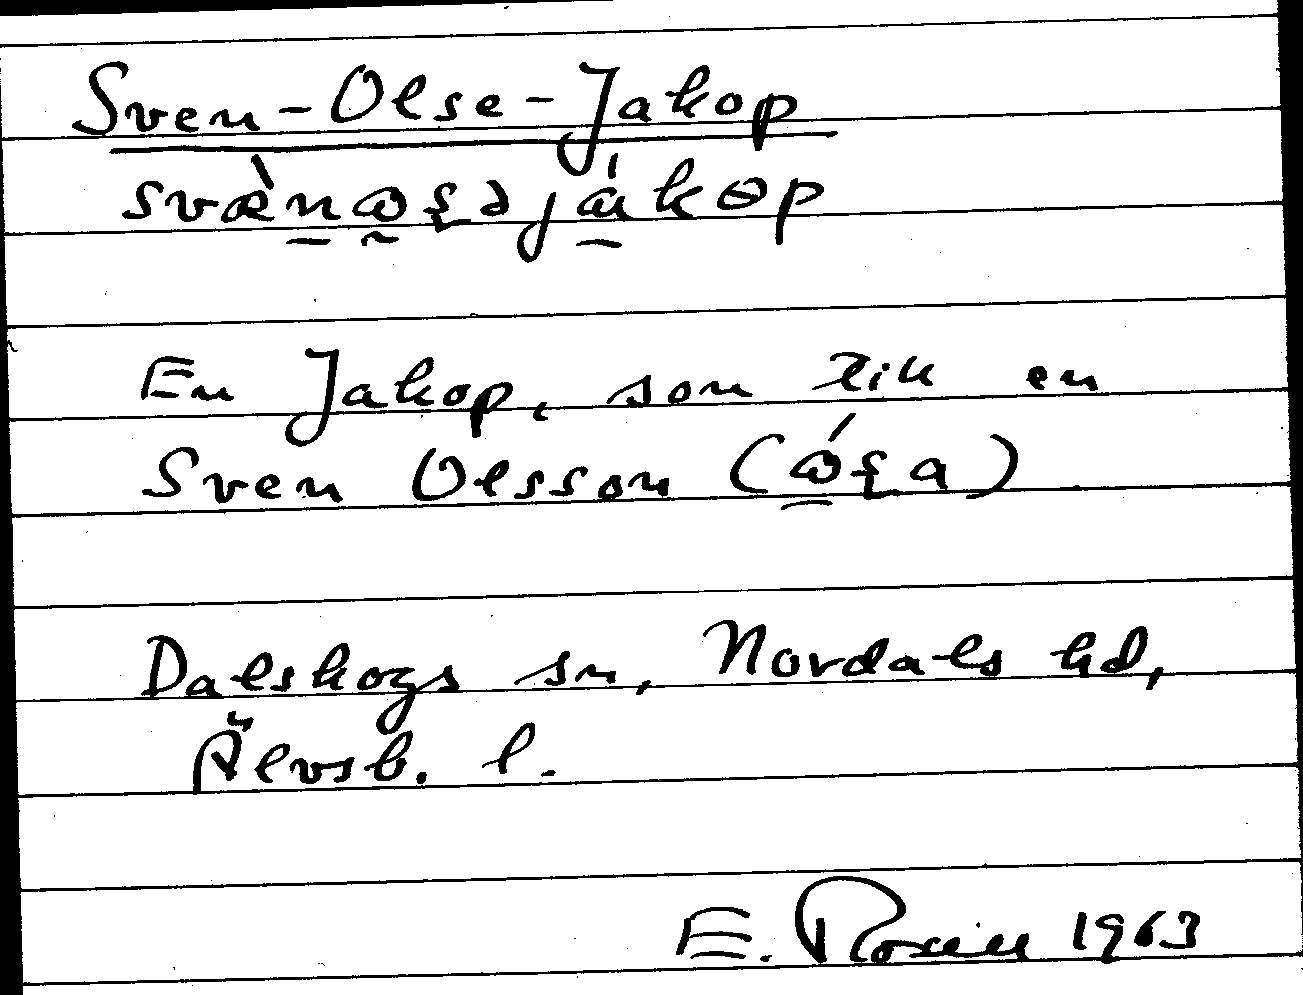 Sven-Olse-Jakop
En Jakop, som fik en
Sven Olsson
Dalskogs sn, Nordals hd,
Älvsb. l.
E. Rosén 1963